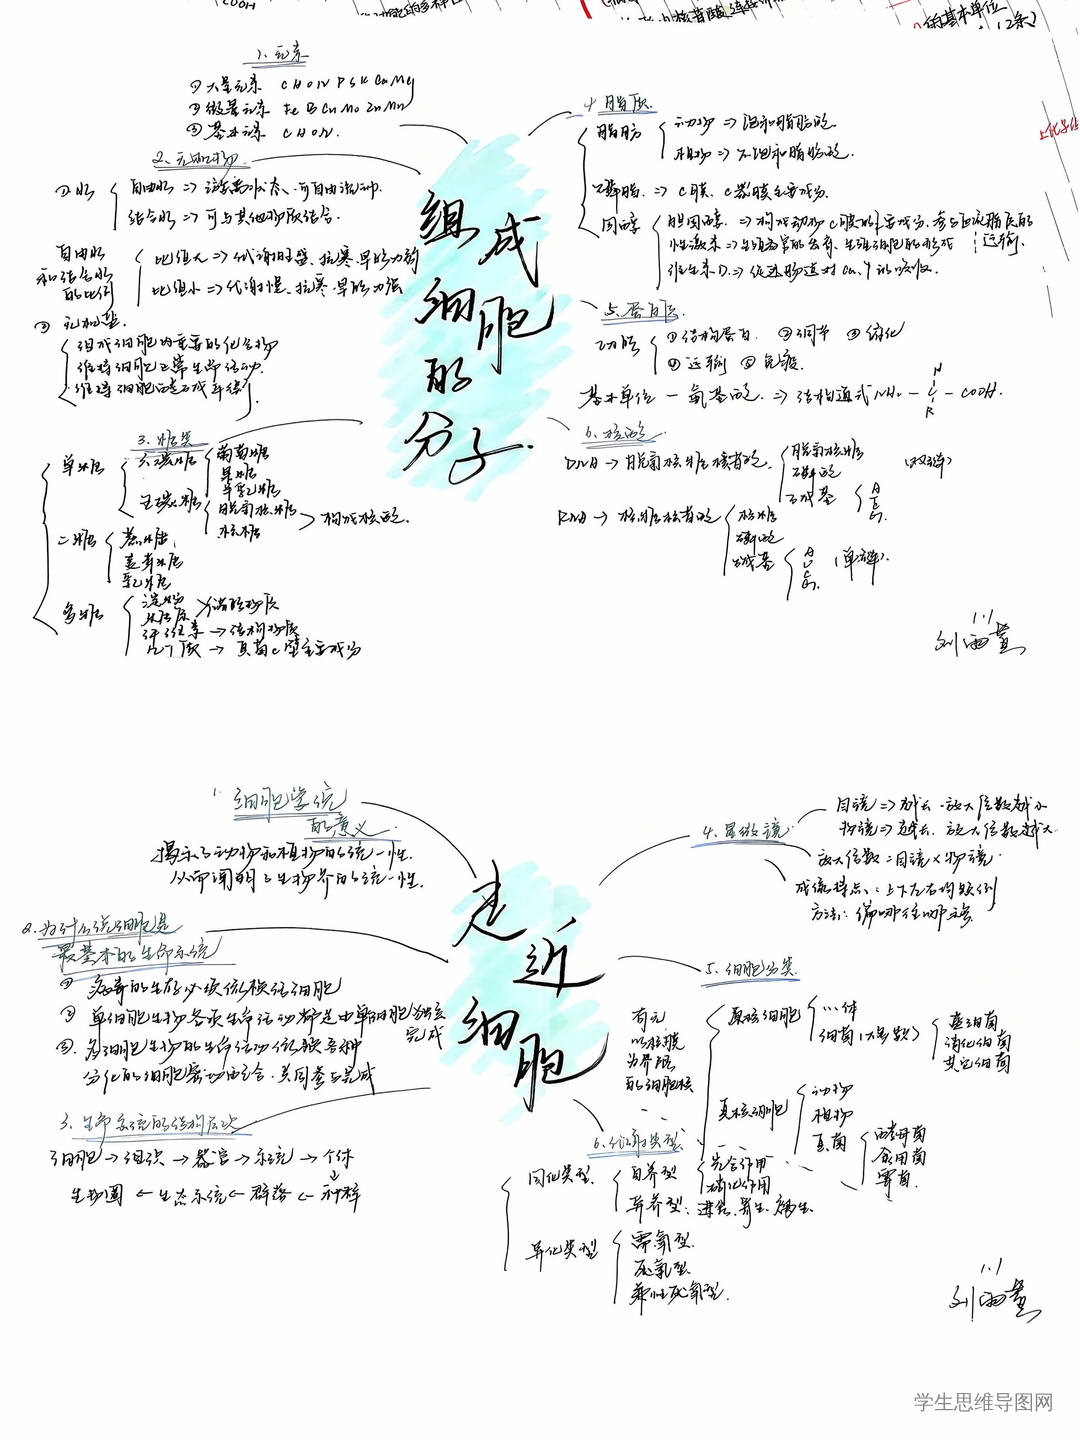 COOH
的基本单位
(2条)
1. 元素
①大量元素 C H O N P S K Ca Mg
②微量元素 Fe B Cu Mo Zn Mn
③基本元素 C H O N.
2. 无机物
①水
自由水 => 游离状态、可自由流动.
结合水 => 可与其他物质结合.
自由水
和结合水
的比例
比值大 => 代谢旺盛、抗寒、旱能力弱
比值小 => 代谢慢、抗寒、旱能力强
② 无机盐.
组成细胞内重要的化合物
维持细胞正常生命活动.
维持细胞酸碱平衡.
3. 糖类
单糖
六碳糖
葡萄糖
果糖
半乳糖
五碳糖
脱氧核糖
核糖
构成核酸.
二糖
蔗糖
麦芽糖
乳糖
多糖
淀粉
糖原
储能物质
纤维素 → 结构物质
几丁质 → 真菌C壁主要成分
组成
细胞
的
分子.
4 脂质.
脂肪
动物 => 饱和脂肪酸.
植物 => 不饱和脂肪酸.
磷脂. => C膜、C器膜主要成分.
固醇
胆固醇. => 构成动物C膜的主要成分. 参与血液脂质的
运输.
性激素 => 生殖器官的发育、生殖细胞的形成
维生素D. => 促进肠道对Ca、P的吸收.
5. 蛋白质.
功能
①结构蛋白. ②调节 ③催化
④运输 ⑤免疫.
基本单位 — 氨基酸. => 结构通式 NH₂ — C — COOH.
R
6. 核酸
DNA → 脱氧核糖核苷酸.
脱氧核糖
磷酸
碱基
A
T
C
G.
(双链)
RNA → 核糖核苷酸
核糖
磷酸
碱基
A
U
C
G.
(单链).
1.1
刘雨萱
1. 细胞学说
的意义.
揭示了动物和植物的统一性.
从而阐明了生物界的统一性.
2. 为什么说细胞是
最基本的生命系统
① 病毒的生存必须依赖活细胞
② 单细胞生物各项生命活动都是由单个细胞独立
完成
③. 多细胞生物的生命活动依赖各种
分化的细胞密切配合. 共同参与完成
3. 生命系统的结构层次
细胞 → 组织 → 器官 → 系统 → 个体
生物圈 ← 生态系统 ← 群落 ← 种群
走
近
细
胞
4. 显微镜.
目镜 => 越长. 放大倍数越小
物镜 => 越长. 放大倍数越大.
放大倍数 = 目镜 × 物镜.
成像特点: 上下左右均颠倒
方法: 偏哪往哪移
5. 细胞分类.
有无
以核膜
为界限
的细胞核
原核细胞
细菌
蓝细菌
硝化细菌
其它细菌
真核细胞
动物
植物
真菌
酵母菌
食用菌
霉菌.
6. 代谢类型.
同化类型.
自养型
光合作用
硝化作用
异养型: 捕食、寄生、腐生.
异化类型
需氧型.
厌氧型.
兼性厌氧型.
1.1
刘雨萱
学生思维导图网